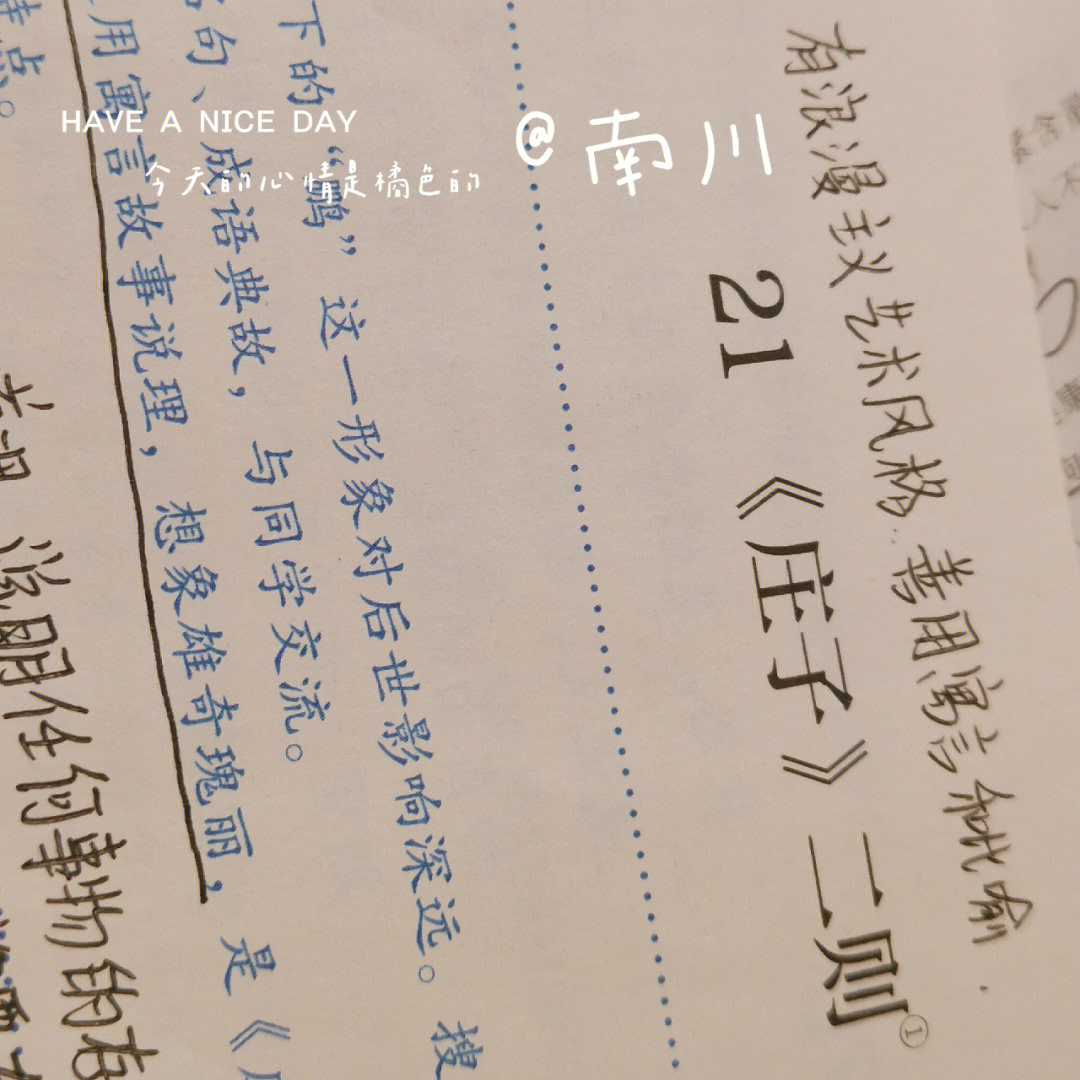 HAVE A NICE DAY
今天的心情是橘色的
@南川
有浪漫主义艺术风格. 善用寓言和比喻.
21 《庄子》二则①
下的“鹏”这一形象对后世影响深远。搜
句、成语典故，与同学交流。
用寓言故事说理，想象雄奇瑰丽，是《
特点。
说明任何事物的存